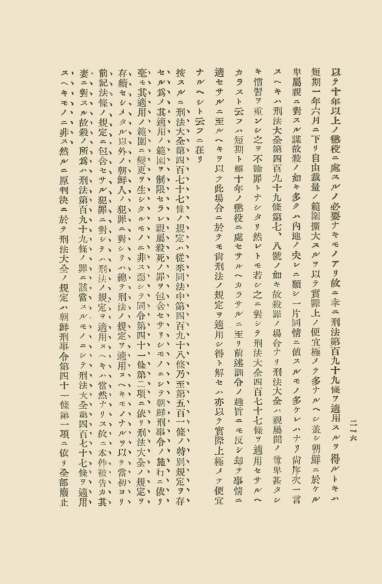 二一六
以テ十年以上ノ懲役ニ處スルノ必要ナキモノアリ故ニ幸ニ刑法第百九十九條ヲ適用スルヲ得ルトキハ
短期一年六月ニ下リ自由裁量ノ範圍擴大スルヲ以テ實際上ノ便宜極メテ多ナルヘシ蓋シ朝鮮ニ於ケル
卑屬親ニ對スル謀故殺ノ如キ多クハ内地ノ夫レニ顯シ一片同情ニ値スルモノ多ケレハナリ尙序次一言
スヘキハ刑法大全第四百九十九條第七、八號ノ如キ故殺罪ノ場合ナリ刑法大全ハ親屬間ノ尊卑甚タシ
キ慣習ヲ重ンシ之ヲ不論罪トナシタリ然レトモ若シ之ニ對シテ刑法大全四百七十七條ヲ適用セサルヘ
カラスト云フハ短期ト雖十年ノ懲役ニ處セサルヘカラサルニ至リ前述調令ノ趣旨ニモ反シ却テ事情ニ
適セサルニ至ルヘキヲ以テ此場合ニ於テモ尙刑法ノ規定ヲ適用シ得ト解セハ亦以テ實際上極メテ便宜
ナルヘシト云フニ在リ
按スルニ刑法大全第四百七十七條ノ規定ハ從來同法中第四百九十八條乃至第五百一條ノ特別規定ヲ存
セル爲メ其適用ノ範圍ヲ制限セラレ親屬殺死ノ罪ヲ包含セサリシモノニシテ朝鮮刑事令ノ施行ニ依リ
毫モ其適用ノ範圍ニ變更ヲ生シタルモノニ非ス而シテ同令第四十一條第二項ニ依リ刑法大全ノ規定ヲ
存續セシメタル以外ノ朝鮮人ノ犯罪ニ對シテハ總テ刑法ノ規定ヲ適用スヘキモノナルヲ以テ當初ヨリ
前記法條ノ規定ニ包含セサル犯罪ニ對シテハ刑法ノ規定ヲ適用スヘキハ當然ナリ故ニ本件被告カ其
妻ニ對スル故殺ノ所爲ハ刑法第百九十九條ノ罪ニ該當スルモノニシテ刑法大全第四百七十七條ヲ適用
スヘキモノニ非ス然ルニ原判決ニ於テ刑法大全ノ規定ハ朝鮮刑事令第四十一條第一項ニ依リ全部廢止